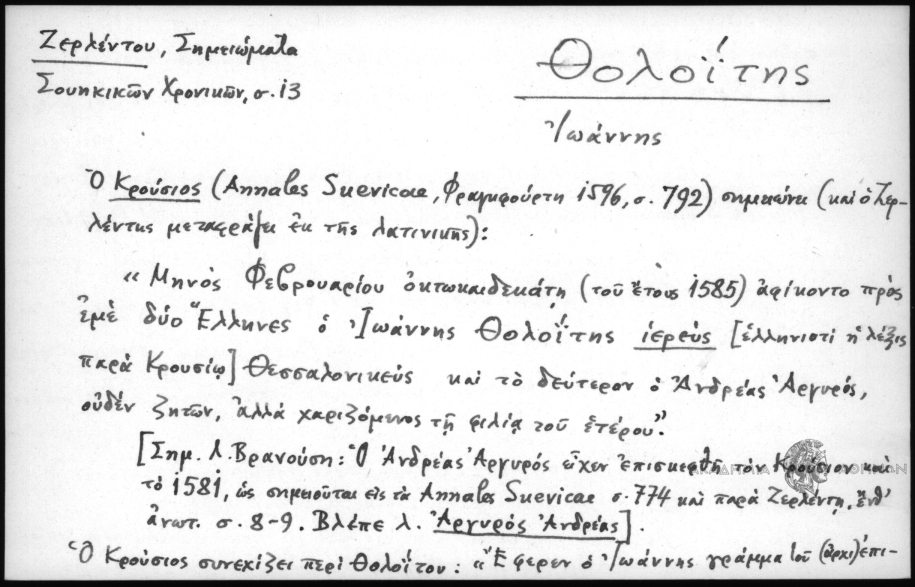 Ζερλέντου, Σημειώματα
Σουηκικῶν Χρονικῶν, σ. 13
Θολοΐτης
Ἰωάννης
Ὁ Κρούσιος (Annales Suevicae, Φραγκφούρτη 1596, σ. 792) σημειώνει (καὶ ὁ Ζερ-
λέντης μεταφράζει ἐκ τῆς λατινικῆς):
«Μηνὸς Φεβρουαρίου ὀκτωκαιδεκάτῃ (τοῦ ἔτους 1585) ἀφίκοντο πρὸς
ἐμὲ δύο Ἕλληνες ὁ Ἰωάννης Θολοΐτης ἱερεὺς [ἑλληνιστὶ ἡ λέξις
παρὰ Κρουσίῳ] Θεσσαλονικεὺς καὶ τὸ δεύτερον ὁ Ἀνδρέας Ἀργυρός,
οὐδὲν ζητῶν, ἀλλὰ χαριζόμενος τῇ φιλίᾳ τοῦ ἑτέρου".
[Σημ. Λ. Βρανούση: Ὁ Ἀνδρέας Ἀργυρὸς εἶχεν ἐπισκεφθῆ τὸν Κρούσιον καὶ
τὸ 1581, ὡς σημειοῦται εἰς τὰ Annales Suevicae σ. 774 καὶ παρὰ Ζερλέντῃ, ἔνθ'
ἀνωτ. σ. 8-9. Βλέπε λ. Ἀργυρὸς Ἀνδρέας].
Ὁ Κρούσιος συνεχίζει περὶ Θολοΐτου: «Ἔφερεν ὁ Ἰωάννης γράμμα τοῦ (ἀρχι)ἐπι-